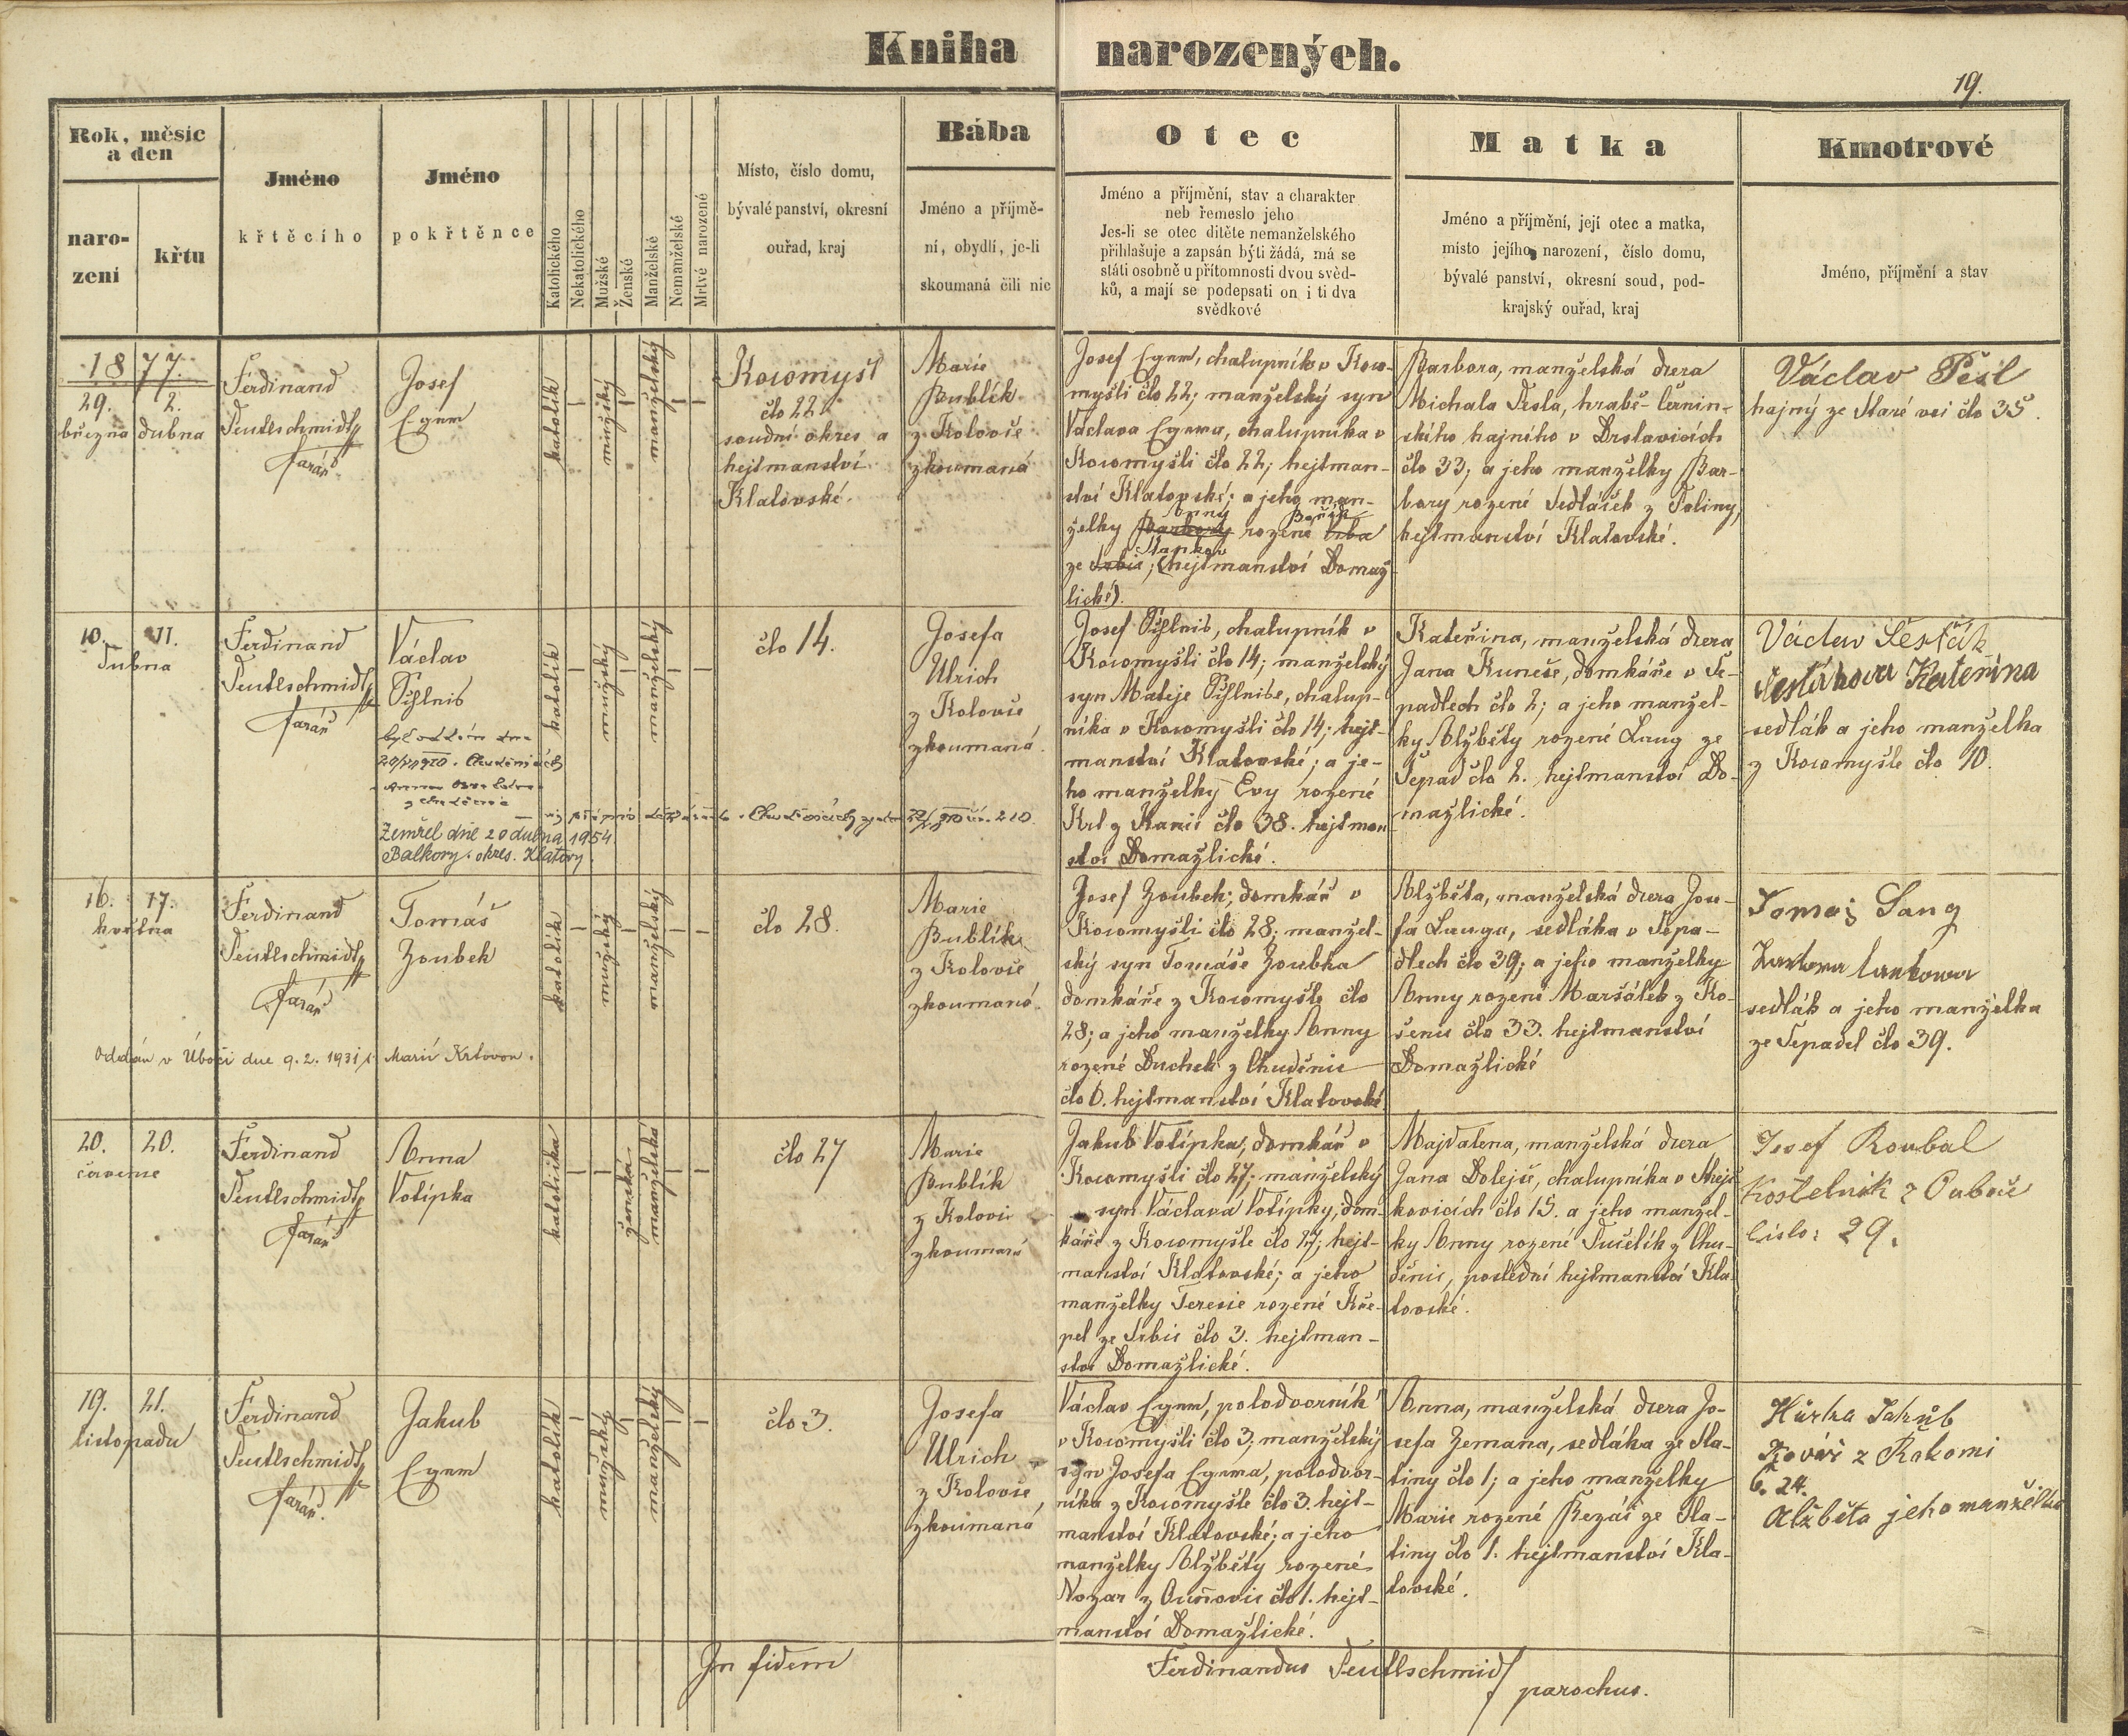 Kniha narozených.
19.
Rok, měsíc
a den
naro-
zení
křtu
Jméno
křtěcího
Jméno
pokřtěnce
Katolického
Nekatolického
Mužské
Ženské
Manželské
Nemanželské
Mrtvé narozené
Místo, číslo domu,
bývalé panství, okresní
ouřad, kraj
Bába
Jméno a příjmě-
ní, obydlí, je-li
skoumaná čili nic
Otec
Jméno a příjmění, stav a charakter
neb řemeslo jeho
Jes-li se otec dítěte nemanželského
přihlašuje a zapsán býti žádá, má se
státi osobně u přítomnosti dvou svěd-
ků, a mají se podepsati on i ti dva
svědkové
Matka
Jméno a příjmění, její otec a matka,
místo jejího narození, číslo domu,
bývalé panství, okresní soud, pod-
krajský ouřad, kraj
Kmotrové
Jméno, příjmění a stav
1877.
29. 2.
března dubna
Ferdinand
Teutlschmidt
farář
Josef
Egnm
katolík
mužský
manželský
Kocomyšl
člo 22
soudní okres a
hejtmanství
Klatovské.
Marie
Bublík
z Koloveč
zkoumaná
Josef Egnm, chalupník v Koco-
myšli člo 22; manželský syn
Václava Egnma, chalupníka v
Kocomyšli člo 22; hejtman-
ství Klatovské; a jeho man-
Anny
želky Barbory rozené Vrba
Stankov
ze Srbic; (hejtmanství Domaž-
lické).
Barbora, manželská dcera
Michala Pešla, hrabě-Černín-
ského hajného v Drslavicích
člo 33; a jeho manželky Bar-
bory rozené Sedláček z Poliny,
hejtmanství Klatovské.
Václav Pešl
hajný ze Staré vsi člo 35.
10. 11.
Dubna
Ferdinand
Teutlschmidt
farář
Václav
Zemřel dne 20 dubna 1954
Balkovy. okres. Klatovy.
katolík
mužský
manželský
člo 14.
Josefa
Ulrich
z Koloveč
zkoumaná.
Josef chalupník v
Kocomyšli člo 14; manželský
syn Matěje chalup-
níka v Kocomyšli člo 14; hejt-
manství Klatovské; a je-
ho manželky Evy rozené
Krl z Kanic člo 38. hejtman
ství Domažlické.
Kateřina, manželská dcera
Jana Kuneše, domkáře v Še-
padlech člo 2; a jeho manžel-
ky Alžběty rozené Lang ze
Šepad člo 2. hejtmanství Do-
mažlické.
Václav Šesták
Šestáková Kateřina
sedlák a jeho manželka
z Kocomyšle člo 10.
16. 17.
května
Ferdinand
Teutlschmidt
farář
Tomáš
Zoubek
Oddán v Úboči dne 9. 2. 1931 s Marií Krlovou.
katolík
mužský
manželský
člo 28.
Marie
Bublík
z Koloveč
zkoumaná.
Josef Zoubek; domkář v
Kocomyšli člo 28; manžel-
ský syn Tomáše Zoubka
domkáře z Kocomyšle člo
28; a jeho manželky Anny
rozené Duchek z Chuděnic
člo 6. hejtmanství Klatovské
Alžběta, manželská dcera Jose-
fa Langa, sedláka v Šepa-
dlech člo 39; a jeho manželky
Anny rozené Maršálek z Ko-
šenic člo 33. hejtmanství
Domažlické
Tomaš Lang
sedlák a jeho manželka
ze Šepadel člo 39.
20. 20.
června
Ferdinand
Teutlschmidt
farář
Anna
Votípka
katolička
ženská
manželská
člo 27
Marie
Bublík
z Koloveč
zkoumaná
Jakub Votípka, domkář v
Kocomyšli člo 27; manželský
syn Václava Votípky, dom-
káře z Kocomyšle člo 27; hejt-
manství Klatovské; a jeho
manželky Teresie rozené Kře-
pel ze Srbic člo 3. hejtman-
ství Domažlické.
Majdalena, manželská dcera
Jana Dolejše, chalupníka v
kovicích člo 15. a jeho manžel-
ky Anny rozené Tučelík z Chu-
děnic, poslední hejtmanství Kla-
tovské.
Josef Roubal
Kostelník z Ouboče
Číslo: 29.
19. 21.
listopadu
Ferdinand
Teutlschmidt
farář.
Jakub
Egnm
katolík
mužský
manželský
člo 3.
Josefa
Ulrich
z Koloveč,
zkoumaná
Václav Egnm, polodvorník
v Kocomyšli člo 3; manželský
syn Josefa Egnma, polodvor-
níka z Kocomyšle člo 3. hejt-
manství Klatovské; a jeho
manželky Alžběty rozené
Nozar z Ouňovic člo 1. hejt-
manství Domažlické.
Anna, manželská dcera Jo-
sefa Zemana, sedláka ze Sla-
tiny člo 1; a jeho manželky
Marie rozené Řezáč ze Sla-
tiny člo 1. hejtmanství Kla-
tovské.
Hůrka Jakub
Kovář z Rokomi
č. 24.
Alžběta jeho manželka
In fidem
Ferdinandus Teutlschmidt
parochus.